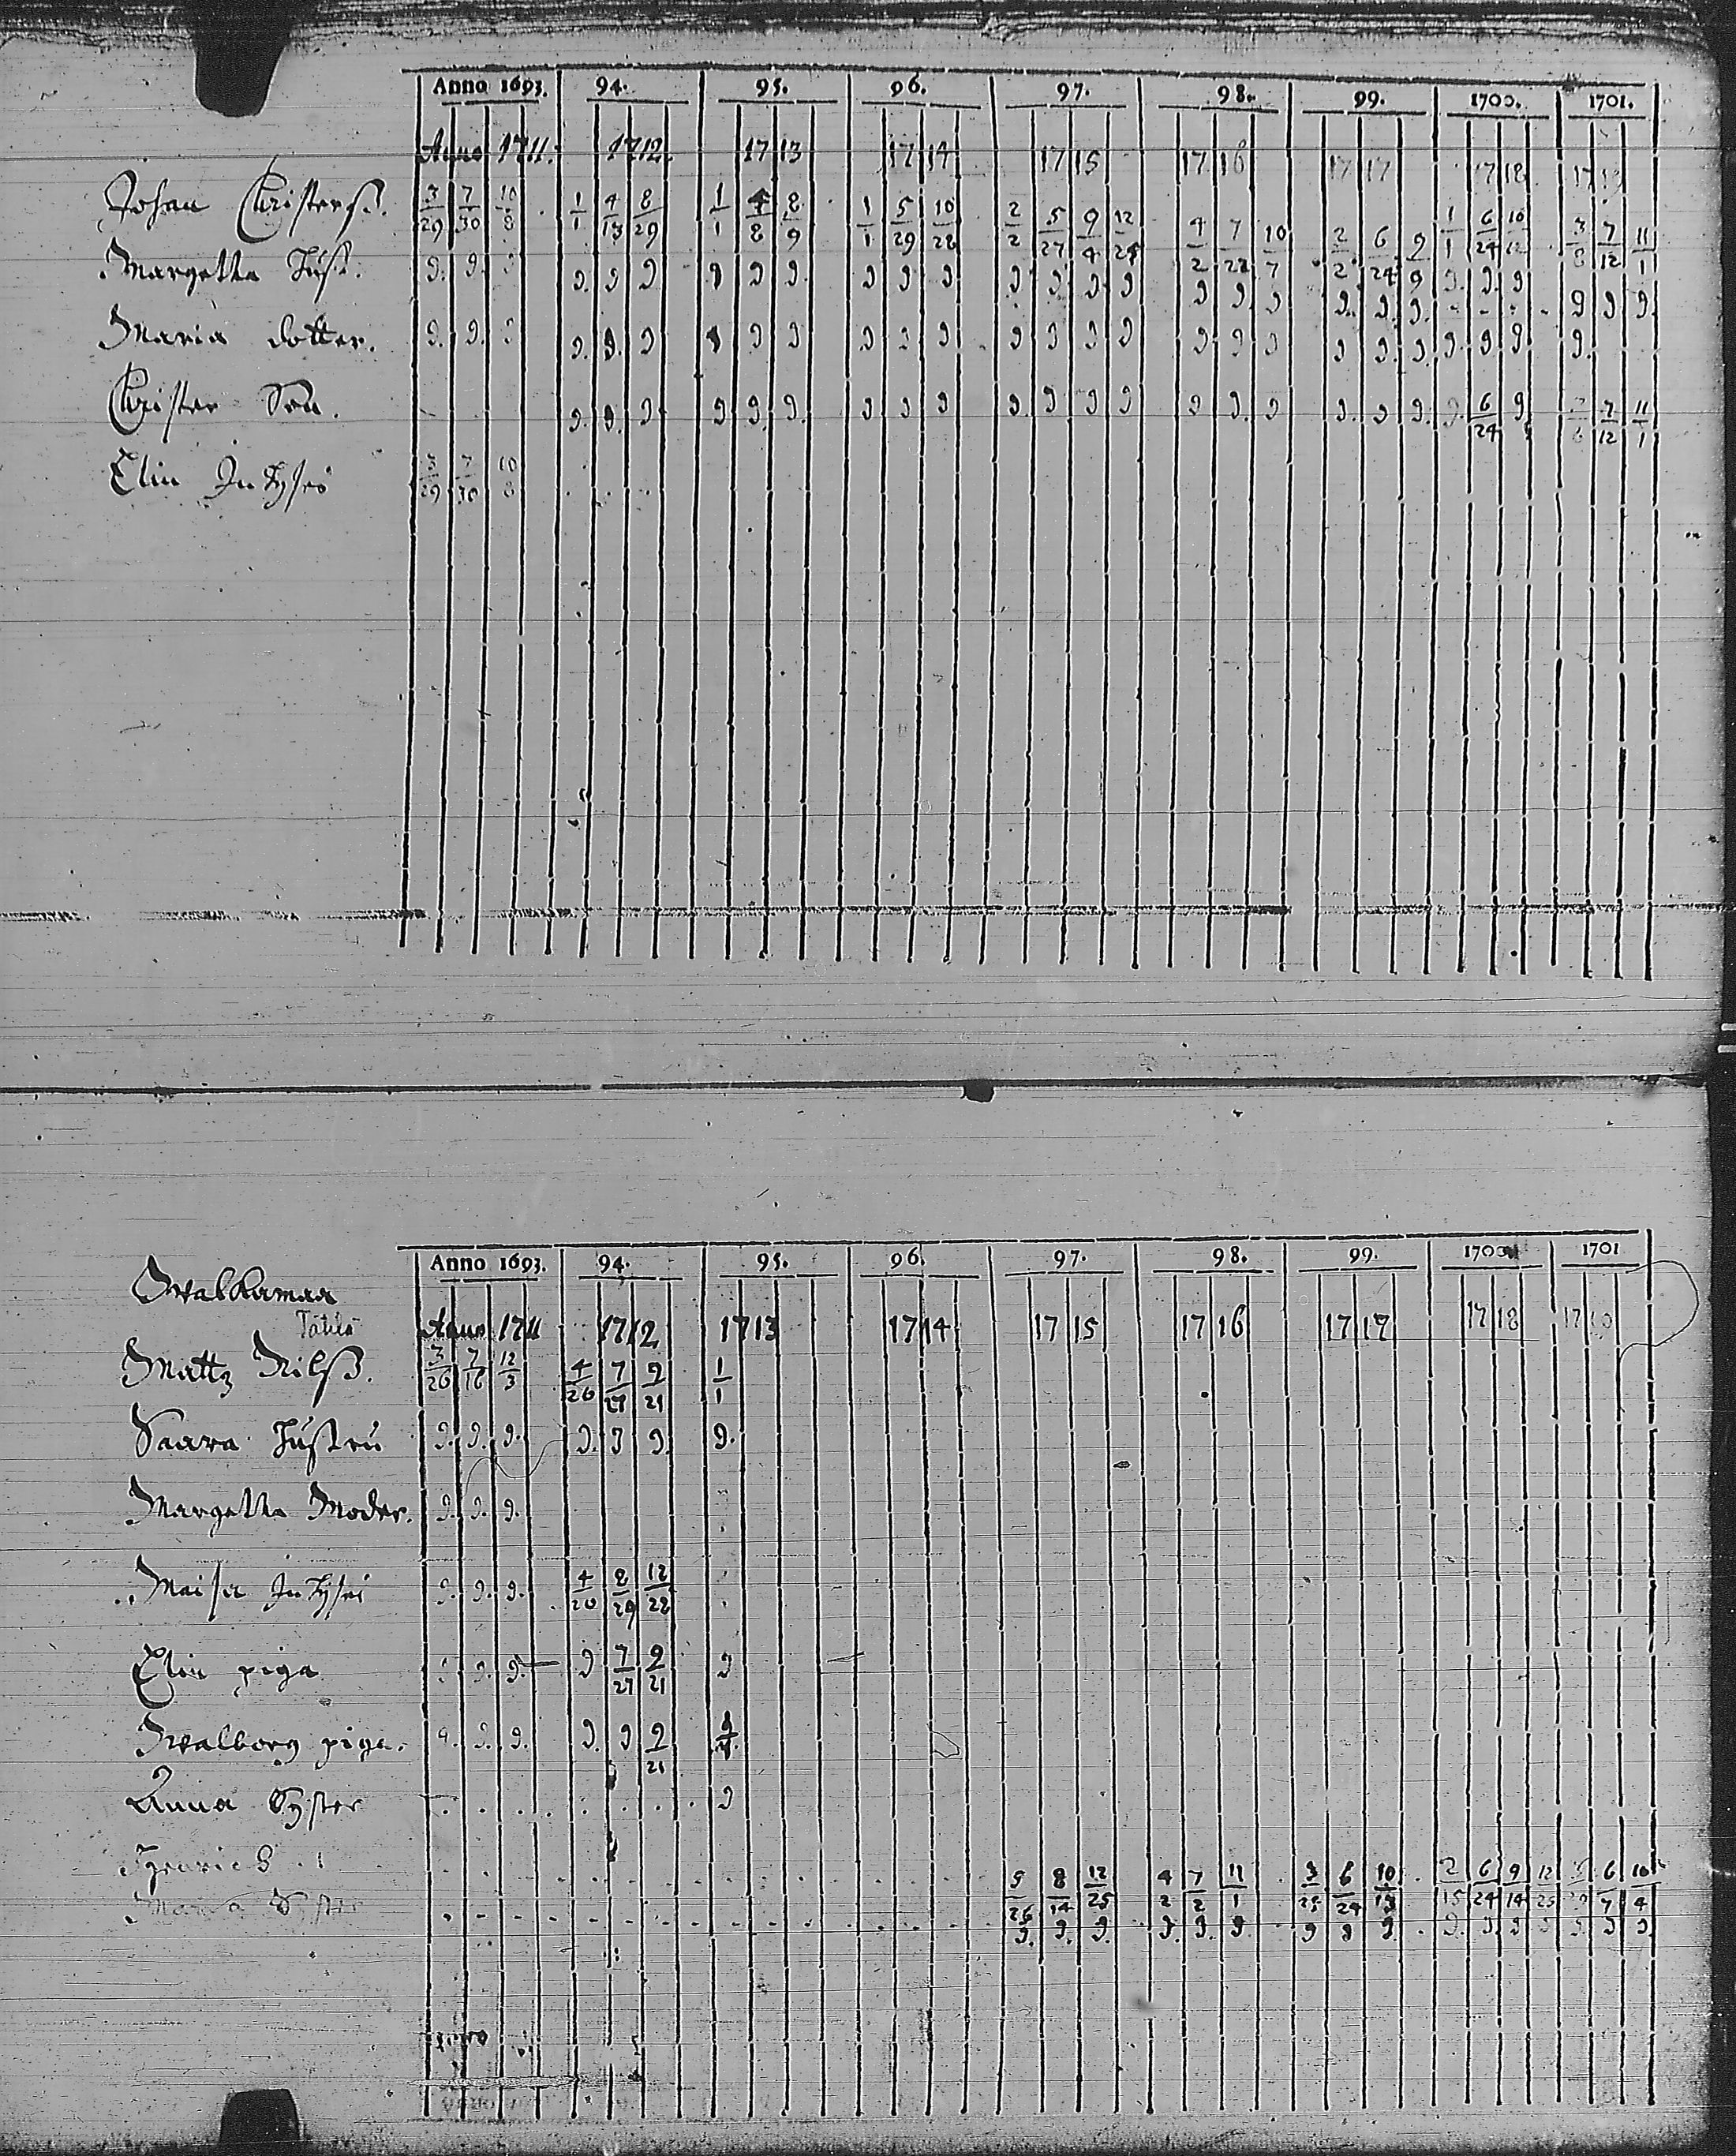 Anno 1693. 94. 95. 96. 97. 98. 99. 1700. 1701.
Anno 1711. 1712. 1713 1714 1715 1716 1717 1718 1719
Johan Christerß. 3/29 7/30 10/8 1/1 4/13 8/29 1/1 4/8 8/9 1/1 5/29 10/28 2/2 5/27 9/4 12/25 4/2 7/22 10/7 2/2 6/24 9/9 1/1 6/24 10/12 3/8 7/12 11/1
Margetha Hust. 9. 9. 9 9. 9 9 9 9 9. 9 9 9 9 9 9 9 9 9. 9 9. 9. 9. 9. 9. 9 9 9 9.
Maria dotter. 9. 9. 9 9. 9. 9 9 9 9 9 9 9 9 9 9 9 9 9 9 9 9. 9. 9. 9 9 9.
Christer Son. 9. 9. 9 9 9. 9. 9 9 9 9. 9 9 9 9 9. 9 9. 9 9. 9. 6/24 9 7/12 11/1
Elin Inhyses 3/29 7/30 10/8
Anno 1693. 94. 95. 96. 97. 98. 99. 1700 1701
Walkamaa
Tätilä
Anno 1711 1712 1713 1714 1715 1716 1717 1718 1719
Mattz Nilß. 3/26 7/16 12/3 4/20 7/27 9/21 1/1
Saara Hustru 9. 9. 9. 9. 9 9. 9.
Margetha Moder. 9. 9. 9.
Maisa Inhyses 9. 9. 9. 4/20 8/29 12/28
Elin piga 9. 9. 9. 9 7/27 9/21 9
Walborg piga. 9. 9. 9. 9. 9 9/21
Anna Syster 9
Henrich 5/26 8/14 12/25 4/2 7/2 11/1 3/25 6/24 10/13 2/15 6/24 9/14 12/25 6/7 10/4
9. 9. 9. 9. 9. 9. 9 9 9 9. 9. 9 9 9. 9 9